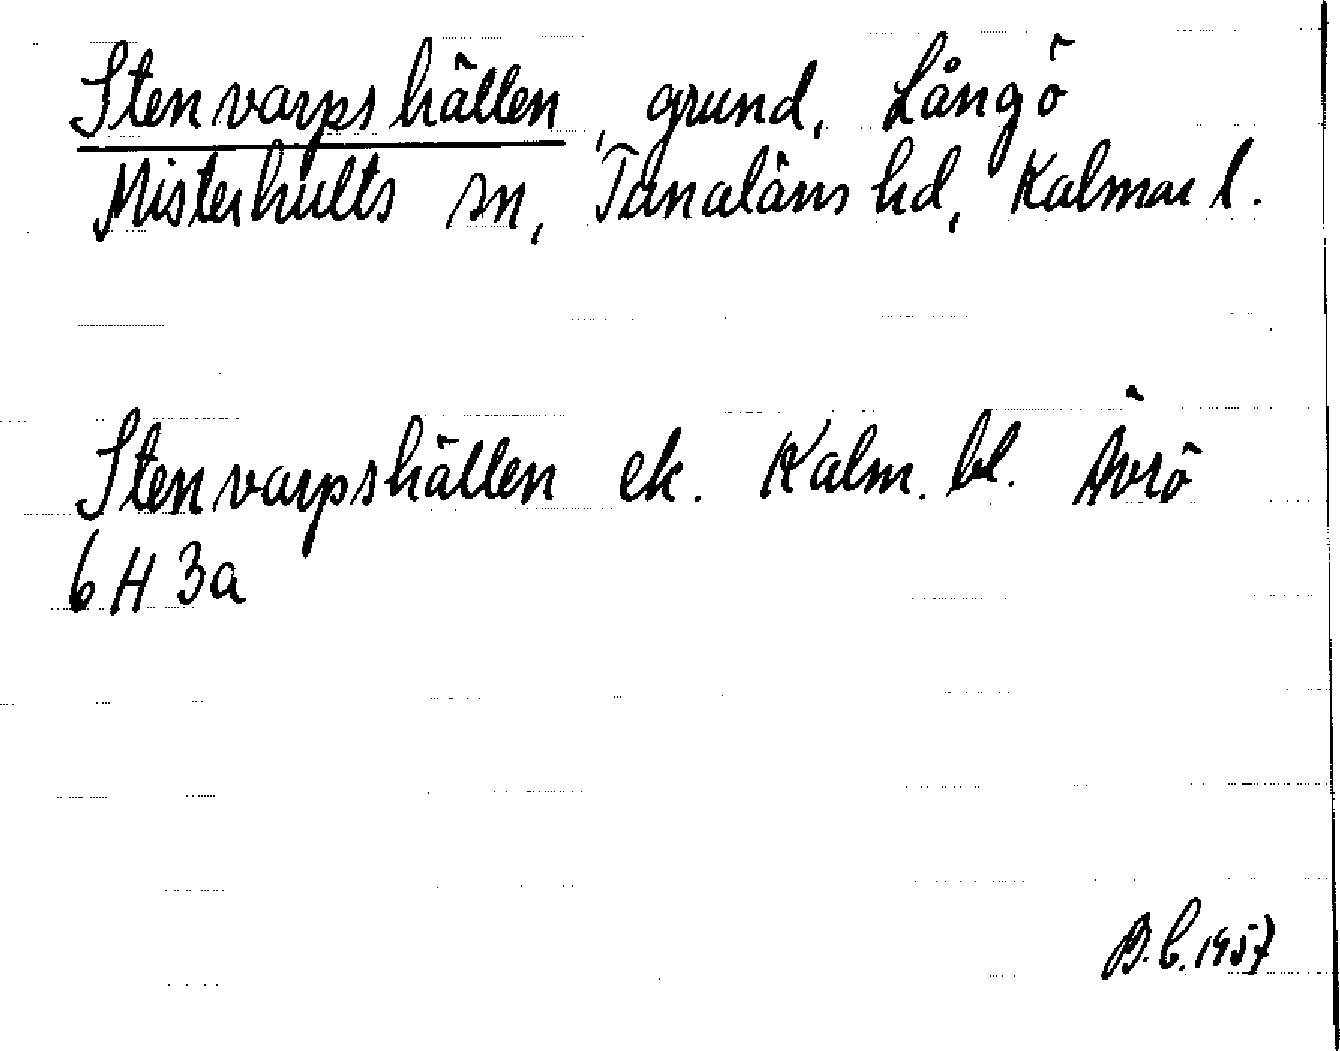 Stenvarpshällen, grund, Långö
Misterhults sn, Tunaläns hd, Kalmar l.
Stenvarpshällen ek. Kalm. bl. Ävrö
6 H 3a
B.C. 1957